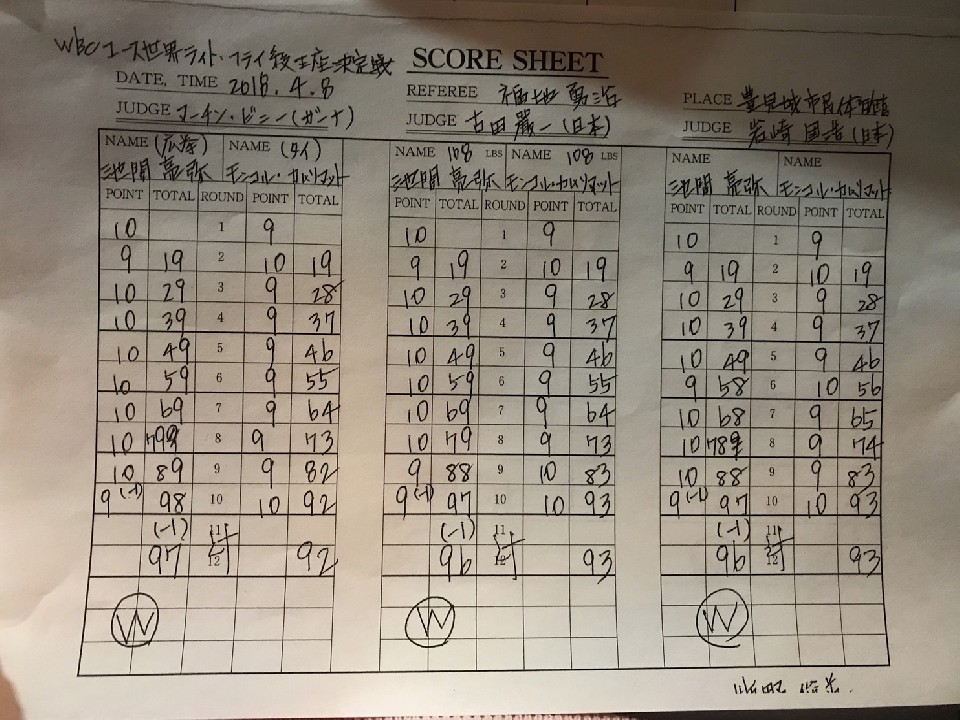 WBCユース世界ライト・フライ級王座決定戦 SCORE SHEET
DATE, TIME 2018.4.8 REFEREE 福地 勇治 PLACE 豊見城市民体育館
JUDGE (ガーナ) JUDGE 古田 厳一(日本) JUDGE 岩崎 (日本)
NAME (広拳) NAME (タイ) NAME 108 LBS NAME 108 LBS NAME NAME
池間 亮弥 モンコル・ 池間 亮弥 モンコル・ 池間 亮弥 モンコル・
POINT TOTAL ROUND POINT TOTAL POINT TOTAL ROUND POINT TOTAL POINT TOTAL ROUND POINT TOTAL
10 1 9 10 1 9 10 1 9
9 19 2 10 19 9 19 2 10 19 9 19 2 10 19
10 29 3 9 28 10 29 3 9 28 10 29 3 9 28
10 39 4 9 37 10 39 4 9 37 10 39 4 9 37
10 49 5 9 46 10 49 5 9 46 10 49 5 9 46
10 59 6 9 55 10 59 6 9 55 9 58 6 10 56
10 69 7 9 64 10 69 7 9 64 10 68 7 9 65
10 79 8 9 73 10 79 8 9 73 10 78 8 9 74
10 89 9 9 82 9 88 9 10 83 10 88 9 9 83
9(-1) 98 10 10 92 9(-1) 97 10 10 93 9(-1) 97 10 10 93
(-1) 11 (-1) 11 (-1) 11
97 12 92 96 12 93 96 12 93
W W W